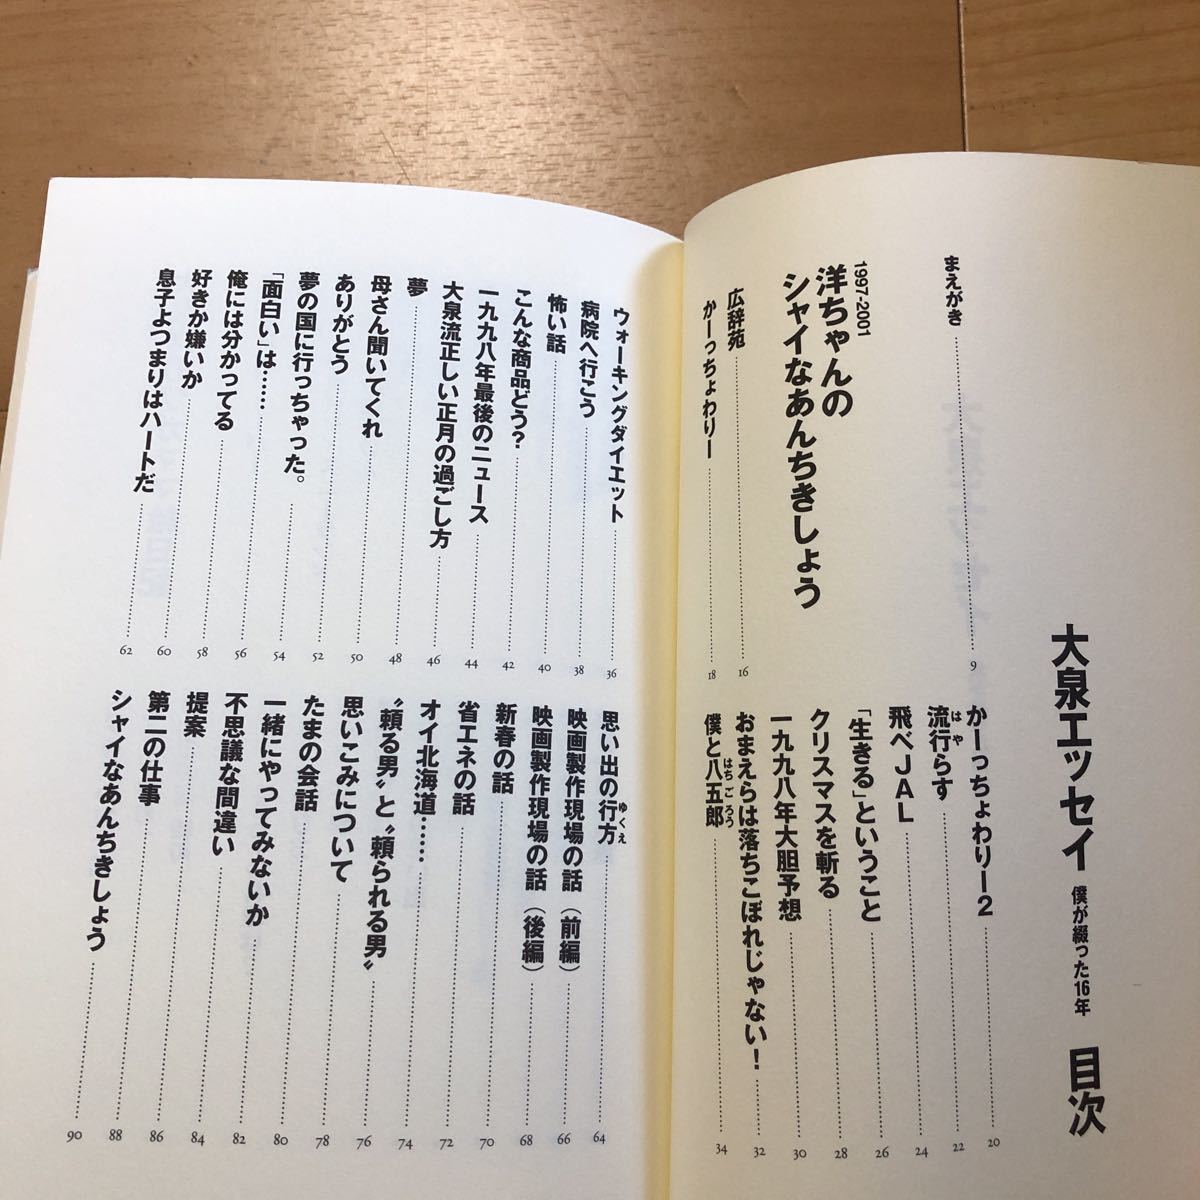 大泉エッセイ 僕が綴った16年 目次
まえがき 9
1997-2001
洋ちゃんの
シャイなあんちきしょう
広辞苑 16
かーっちょわりー 18
かーっちょわりー2 20
流行らす 22
はや
飛べJAL 24
「生きる」ということ 26
クリスマスを斬る 28
一九九八年大胆予想 30
おまえらは落ちこぼれじゃない! 32
僕と八五郎 34
はちごろう
ウォーキングダイエット 36
病院へ行こう 38
怖い話 40
こんな商品どう? 42
一九九八年最後のニュース 44
大泉流正しい正月の過ごし方 46
夢 48
母さん聞いてくれ 50
ありがとう 52
夢の国に行っちゃった。 54
「面白い」は…… 56
俺には分かってる 58
好きか嫌いか 60
息子よつまりはハートだ 62
思い出の行方 64
ゆくえ
映画製作現場の話(前編) 66
映画製作現場の話(後編) 68
新春の話 70
省エネの話 72
オイ北海道…… 74
〝頼る男〟と〝頼られる男〟 76
思いこみについて 78
たまの会話 80
一緒にやってみないか 82
不思議な間違い 84
提案 86
第二の仕事 88
シャイなあんちきしょう 90